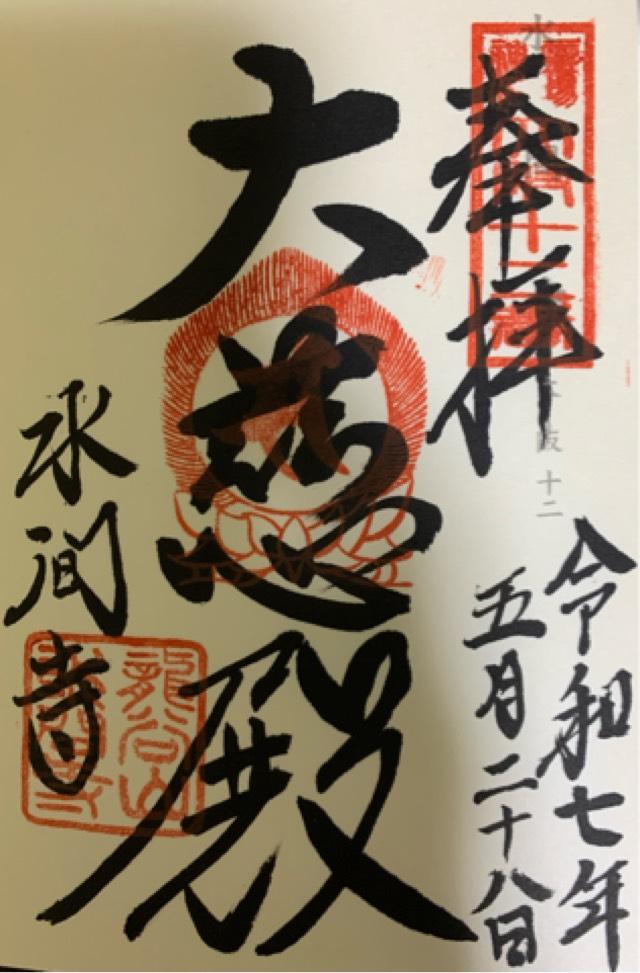 奉拝
令和七年
五月二十八日
大慈殿
水間寺
龍谷山